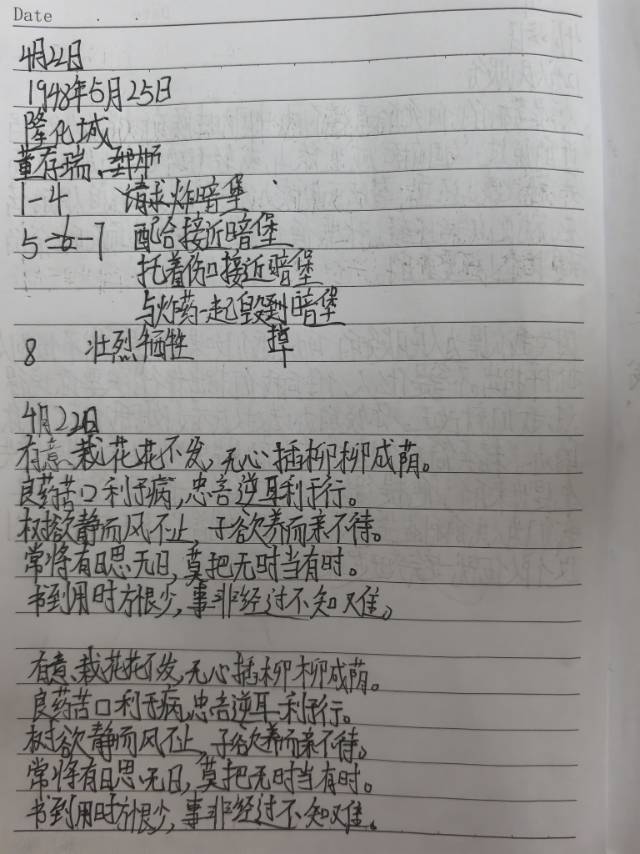 Date . .
4月22日
1948年5月25日
隆化城
董存瑞、郅顺
1-4 请求炸暗堡
5-6-7 配合接近暗堡
托着伤口接近暗堡
与炸药一起毁到暗堡
8 壮烈牺牲 掉
4月22日
有意栽花花不发,无心插柳柳成荫。
良药苦口利于病,忠言逆耳利于行。
树欲静而风不止,子欲养而亲不待。
常将有日思无日,莫把无时当有时。
书到用时方恨少,事非经过不知难。
有意栽花花不发,无心插柳柳成荫。
良药苦口利于病,忠言逆耳利于行。
树欲静而风不止,子欲养而亲不待。
常将有日思无日,莫把无时当有时。
书到用时方恨少,事非经过不知难。